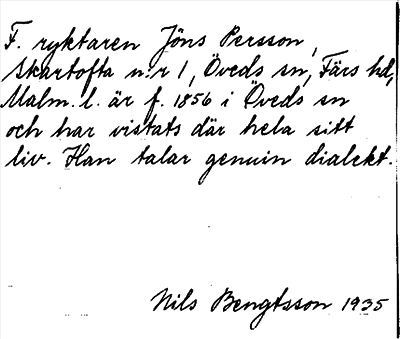 F. ryktaren Jöns Persson,
Skartofta n:r 1, Öveds sn, Färs hd,
Malm. l. är f. 1856 i Öveds sn
och har vistats där hela sitt
liv. Han talar genuin dialekt.
Nils Bengtsson 1935